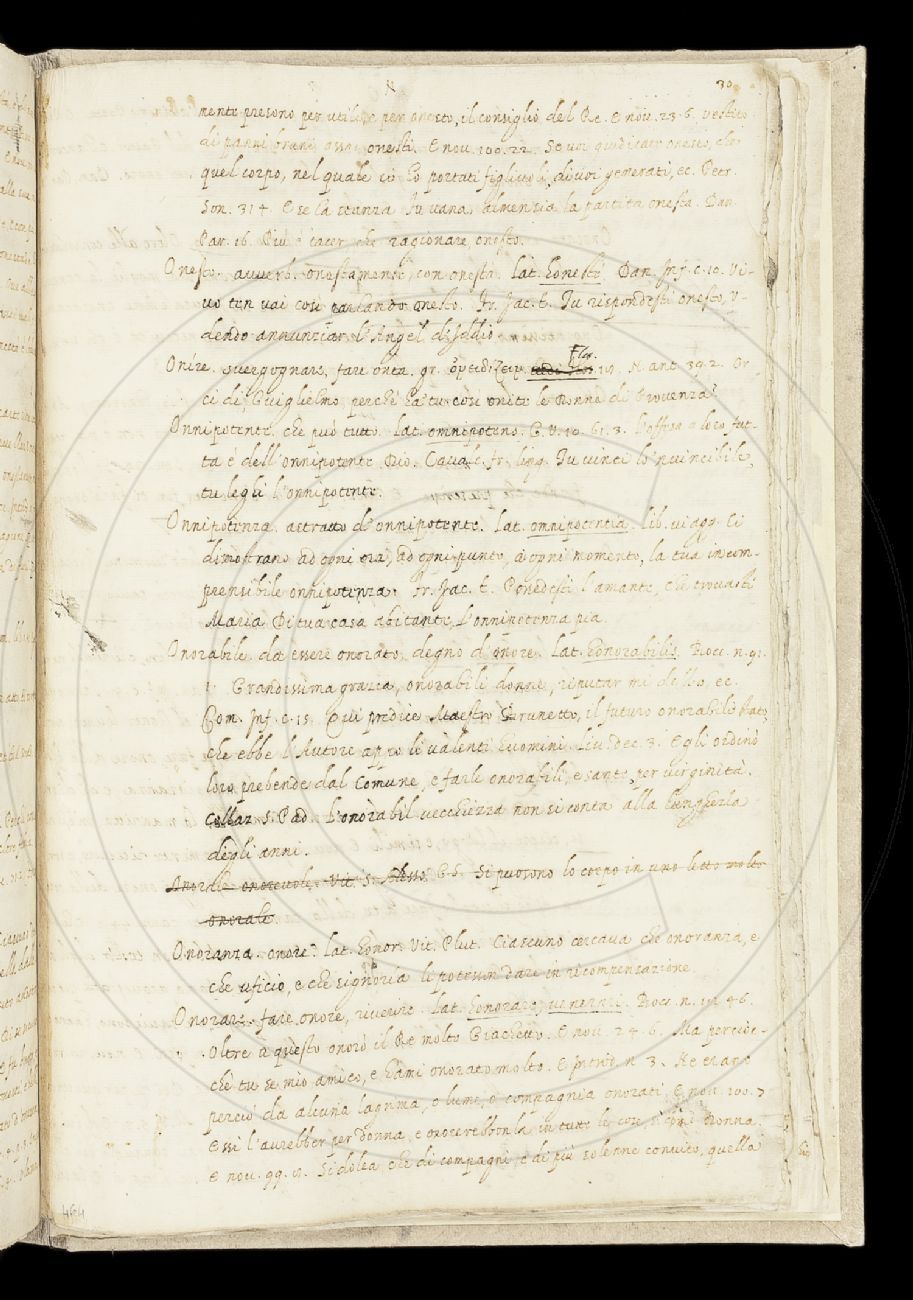 N 30
mente presono per utile, e per onesto, il consiglio del Re. E nov. 23. 6. vestito
di panni bruni assai onesti. E nov. 100. 22. Se voi giudicate onesto, che
quel corpo, nel quale io ho portati figliuoli, di voi generati, ec. Petr.
Son. 314. E se la stanza Fu vana, almen sia la partita onesta. Dan.
Par. 16. Più è tacer che ragionare, onesto.
Onesto. avverb. onestamente, con onestà. lat. honeste. Dan. Inf. c. 10. Vi-
vo ten vai così parlando onesto. Fr. Jac. t. Tu rispondesti onesto, V-
dendo annunciar l'Angel di Iddio
Onire. svergognare, fare onta. gr. ὀνειδίζειν Flor. 19. N. ant. 39. 2. Or
ci di Guiglielmo perchè ha tu così onite le Donne di Provenza?
Onnipotente. che può tutto. lat. omnipotens. G. V. 10. 61. 3. l'offesa a loro fat-
ta è dell'onnipotente Dio. Cavalc. fr. ling. Tu vinci lo 'nvincibile,
tu leghi l'onnipotente.
Onnipotenza. astratto d'onnipotente. lat. omnipotentia. lib. viagg. Ci
dimostrano ad ogni ora, ad ogni punto, a ogni momento, la tua incom-
prensibile onnipotenza. Fr. Jac. t. l'amante, che trovasti
Maria Di tua casa abitante, l'onnipotenza pia.
Onorabile. da essere onorato, degno d'onore. lat. honorabilis. Bocc. n. 91.
1. Grandissima grazia, onorabili donne, reputar mi debbo, ec.
Com. Inf. c. 15. Qui predice Maestro Brunetto, il futuro onorabile stato,
che ebbe l'Autore appo li valenti huomini. Liv. dec. 3. Egli ordinò
loro prebende dal Comune, e farle onorabili, e sante, per virginità.
Collaz. S. Pad. l'onorabil vecchiezza non si conta alla lunghezza
degli anni.
Onorale onorevole. Vit. S. G. S. Si puosono lo corpo in uno letto molto
onorale.
Onoranza. onore. lat. honor. Vit. Plut. Ciascuno cercava che onoranza, e
che uficio, e che signoria li potessin dare in ricompensazione
Onorare. fare onore, riverire. lat. honorare, venerari. Bocc. n. 46.
Oltre a questo onorò il Re molto Giachetto. E nov. 24. 6. Ma percioc-
chè tu se mio amico, e hami onorato molto. E introd. n. 3. Ne erano
perciò da alcuna lagrima, o lume, o compagnia onorati, E nov. 100. 7
Essi l'avrebber per donna, e onorerebbonla in tutte le cose, sì come Donna.
E nov. 99. Si dolea che di compagni, e di più solenne convito, quella
464